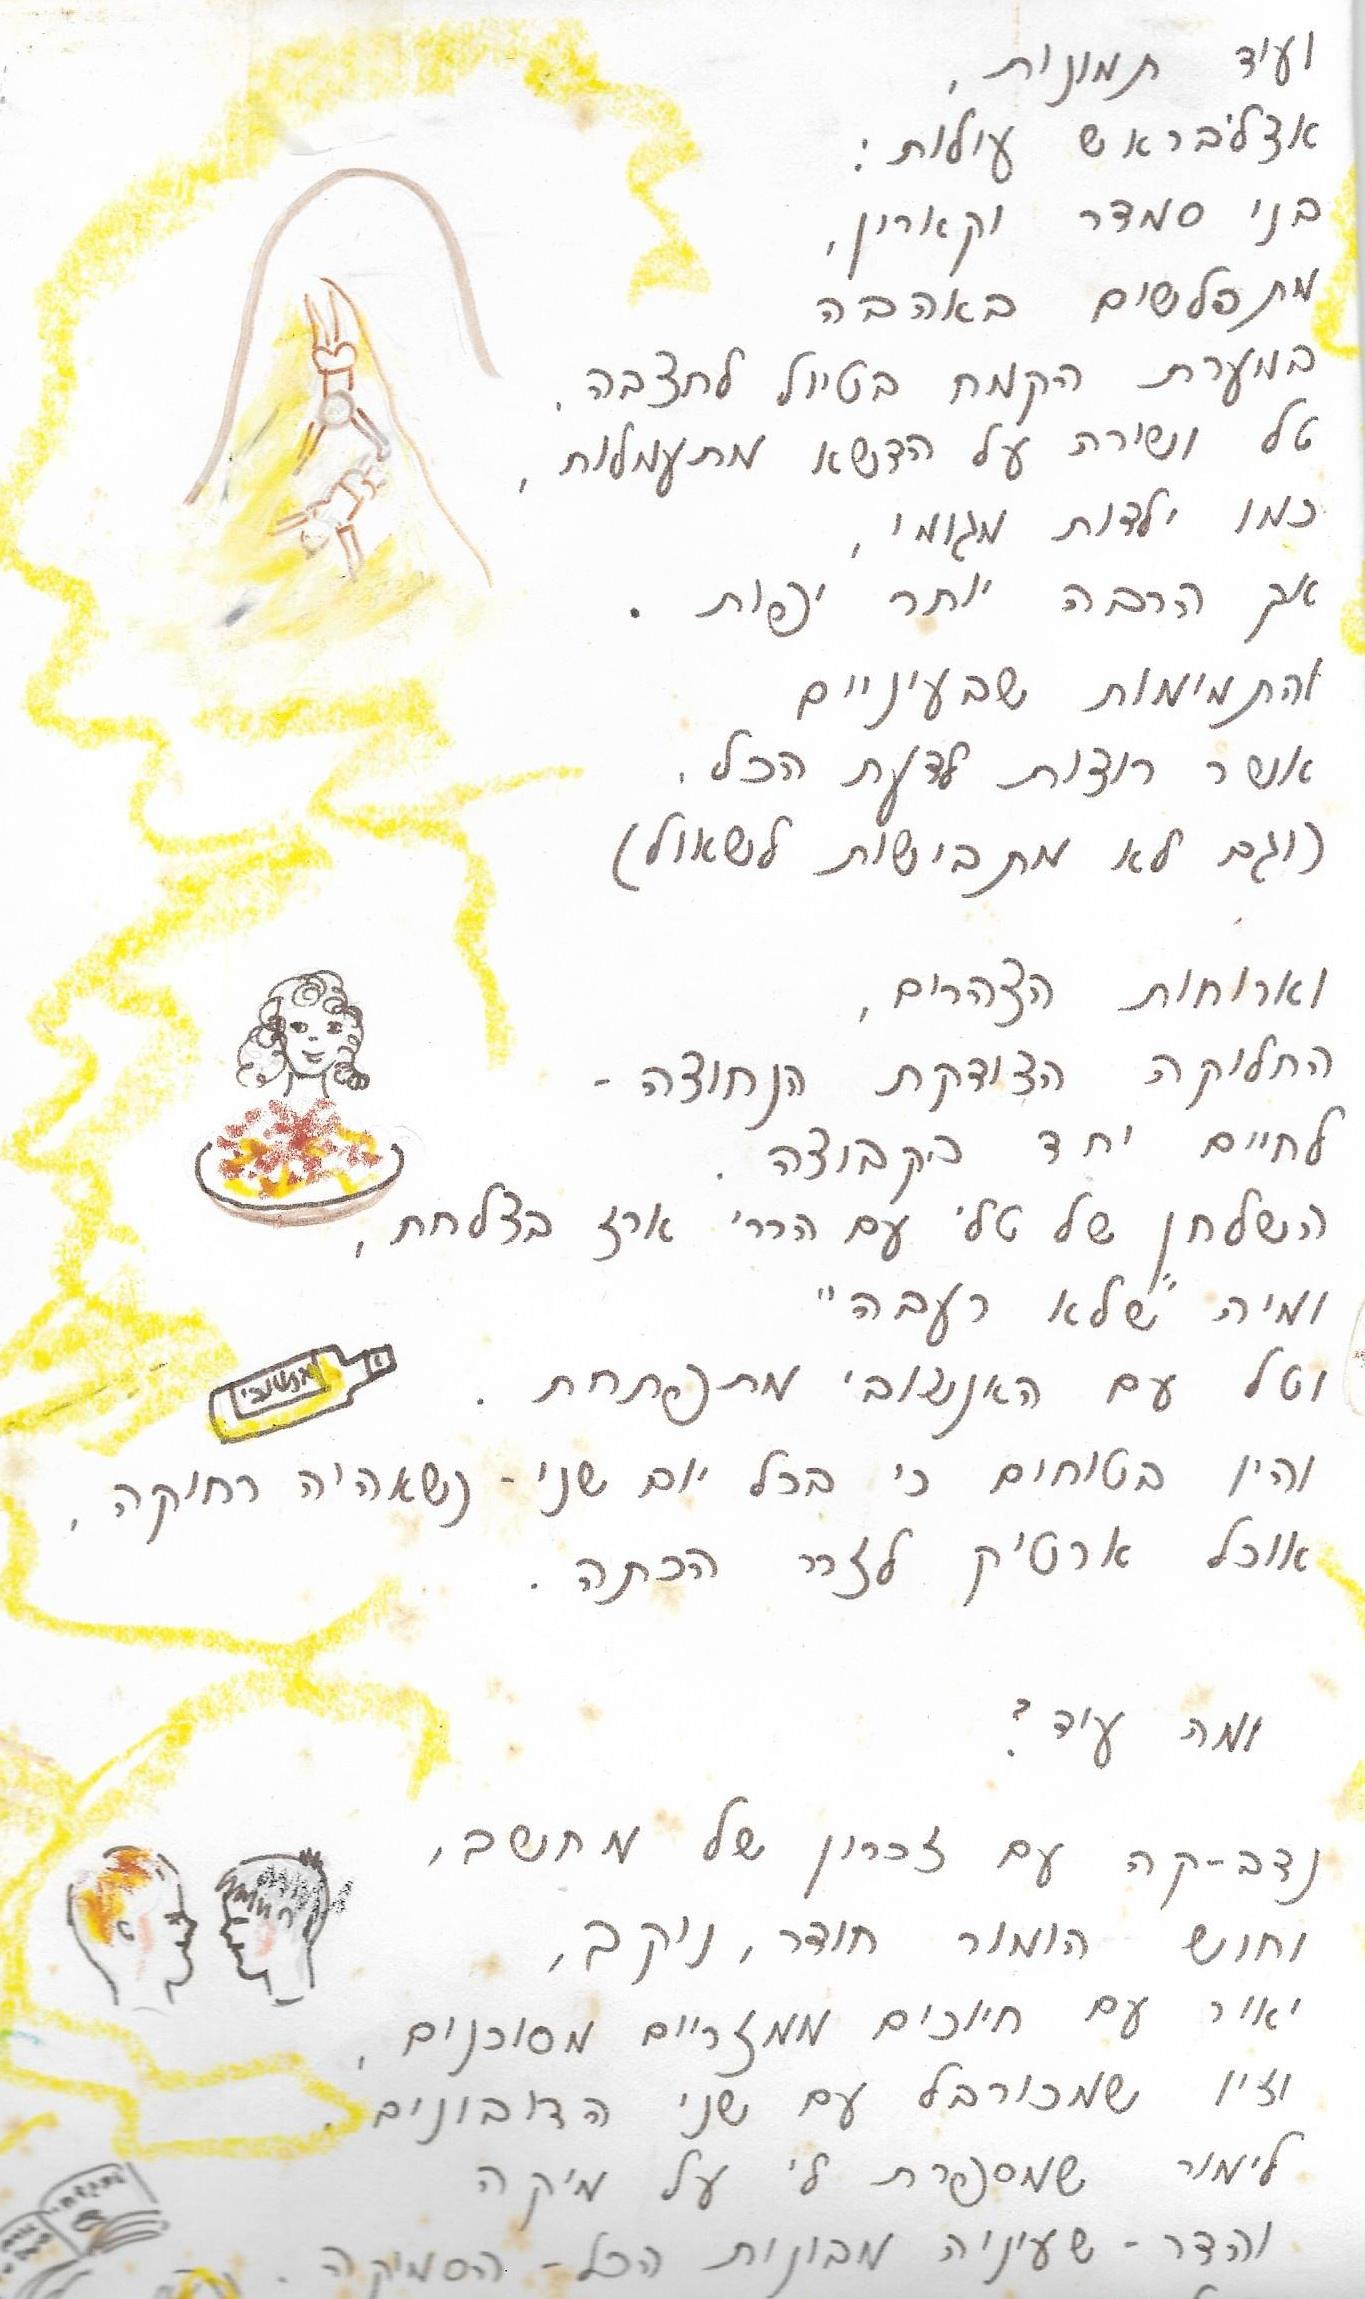 ועוד תמונות,
אצלי בראש עולות:
בני סמדר וקארון,
מתפלשים באהבה
במערת הקמח בטיול לחצבה.
טל ושירה על הדשא מתעמלות,
כמו ילדות מגומי,
אך הרבה יותר יפות.
והתמימות שבעיניים
אשר רוצות לדעת הכל,
(וגם לא מתביישות לשאול)
וארוחות הצהרים,
החלוקה הצודקת הנחוצה -
לחיים יחד בקבוצה.
השלחן של טלי עם הררי אורז בצלחת,
ומיה "שלא רעבה"
וטל עם האנשובי מתפתחת.
אנשובי
והיו בטוחים כי בכל יום שני - כשאהיה רחוקה,
אוכל ארטיק לזכר הכתה.
ומה עוד?
נדב-קה עם זכרון של מחשב,
וחוש הומור חודר, נוקב,
יאיר עם חיוכים ממזריים מסוכנים,
וזיו שמכורבל עם שני הדובונים.
לימור שמספרת לי על מיקה
והדר - שעיניה מבונות הכל - הסמיקה.